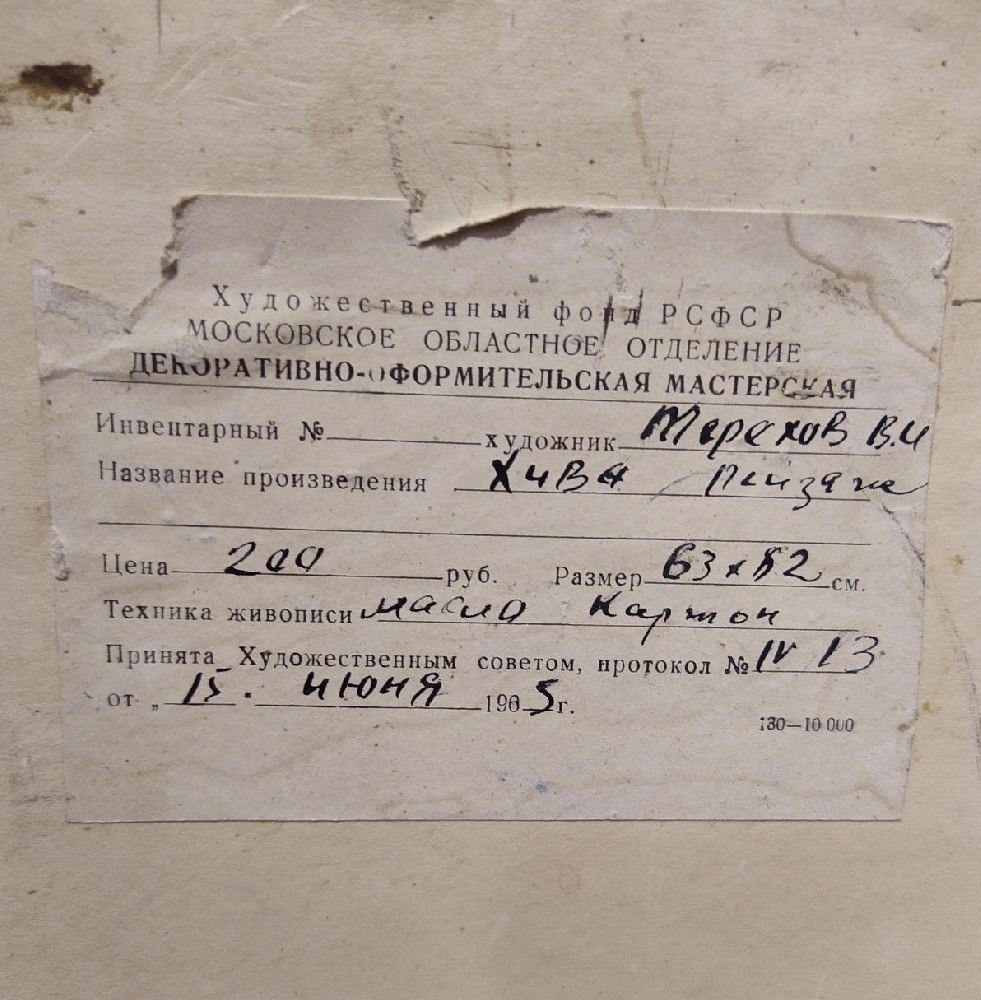 Художественный фонд РСФСР
МОСКОВСКОЕ ОБЛАСТНОЕ ОТДЕЛЕНИЕ
ДЕКОРАТИВНО-ОФОРМИТЕЛЬСКАЯ МАСТЕРСКАЯ
Инвентарный № художник В.И
Название произведения Хива Пейзаж
Цена 200 руб. Размер 63 x 82 см.
Техника живописи масло Картон
Принята Художественным советом, протокол № IV 13
от „ 15. июня 1965 г.
180—10 000